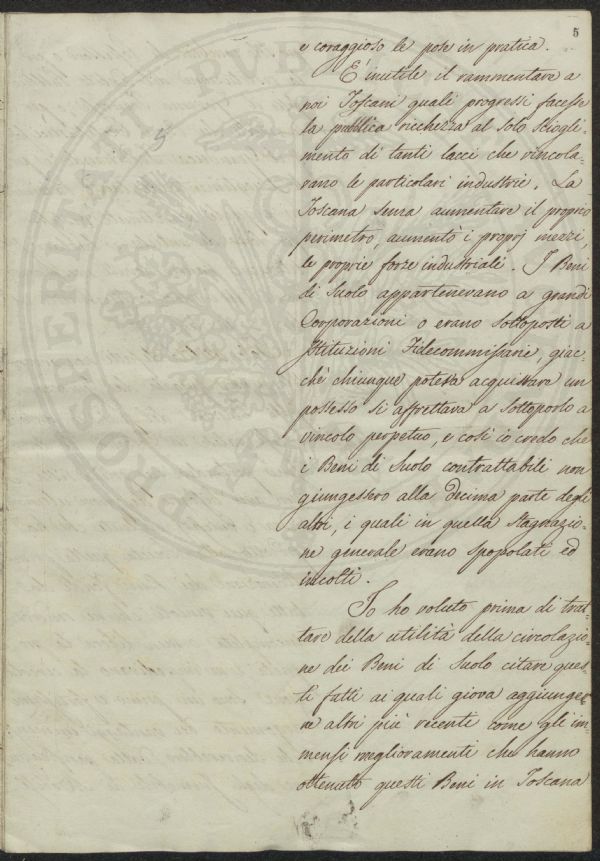 5
e coraggioso le pose in pratica.
E' inutile il rammentare a
noi Toscani quali progressi facesse
la pubblica ricchezza al solo sciogli=
mento di tanti lacci che vincola=
vano le particolari industrie. La
Toscana senza aumentare il proprio
perimetro, aumentò i proprj mezzi,
le proprie forze industriali. I Beni
di Suolo appartenevano a grandi
Corporazioni o erano sottoposti a
Istituzioni Fidecommissarie, giac=
chè chiunque poteva acquistare un
possesso si affrettava a sottoporlo a
vincolo perpetuo, e così io credo che
i Beni di Suolo contrattabili non
giungessero alla decima parte degli
altri, i quali in quella stagnazio=
ne generale erano spopolati ed
incolti.
Io ho voluto prima di trat=
tare della utilità della circolazio=
ne dei Beni di Suolo citare ques=
ti fatti ai quali giova aggiunge=
re altri più recenti come gli im=
mensi miglioramenti che hanno
ottenuto questi Beni in Toscana
PROSPERITATI PUB